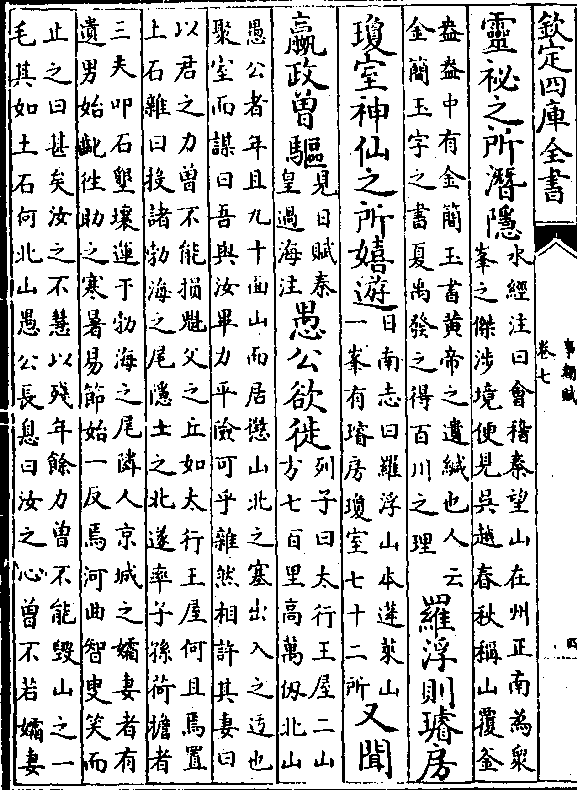 欽定四庫全書
事類賦
卷七
四
靈祕之所潛隱
水經注曰會稽秦望山在州正南為衆
峯之傑涉境便見吳越春秋稱山覆釜
盎盎中有金簡玉書黃帝之遺緘也人云
金簡玉字之書夏禹發之得百川之理
羅浮則璿房
瓊室神仙之所嬉遊
日南志曰羅浮山本蓬萊山
一峯有璿房瓊室七十二所
又聞
嬴政曾驅
見日賦秦
皇過海注
愚公欲徙
列子曰太行王屋二山
方七百里高萬仭北山
愚公者年且九十面山而居懲山北之塞出入之迂也
聚室而謀曰吾與汝畢力平險可乎雜然相許其妻曰
以君之力曾不能損魁父之丘如太行王屋何且焉置
土石雜曰投諸勃海之尾隱土之北遂率子孫荷擔者
三夫叩石墾壤運于勃海之尾隣人京城之孀妻者有
遺男始齔徃助之寒暑易節始一反焉河曲智叟笑而
止之曰甚矣汝之不慧以殘年餘力曾不能毀山之一
毛其如土石何北山愚公長息曰汝之心曾不若孀妻